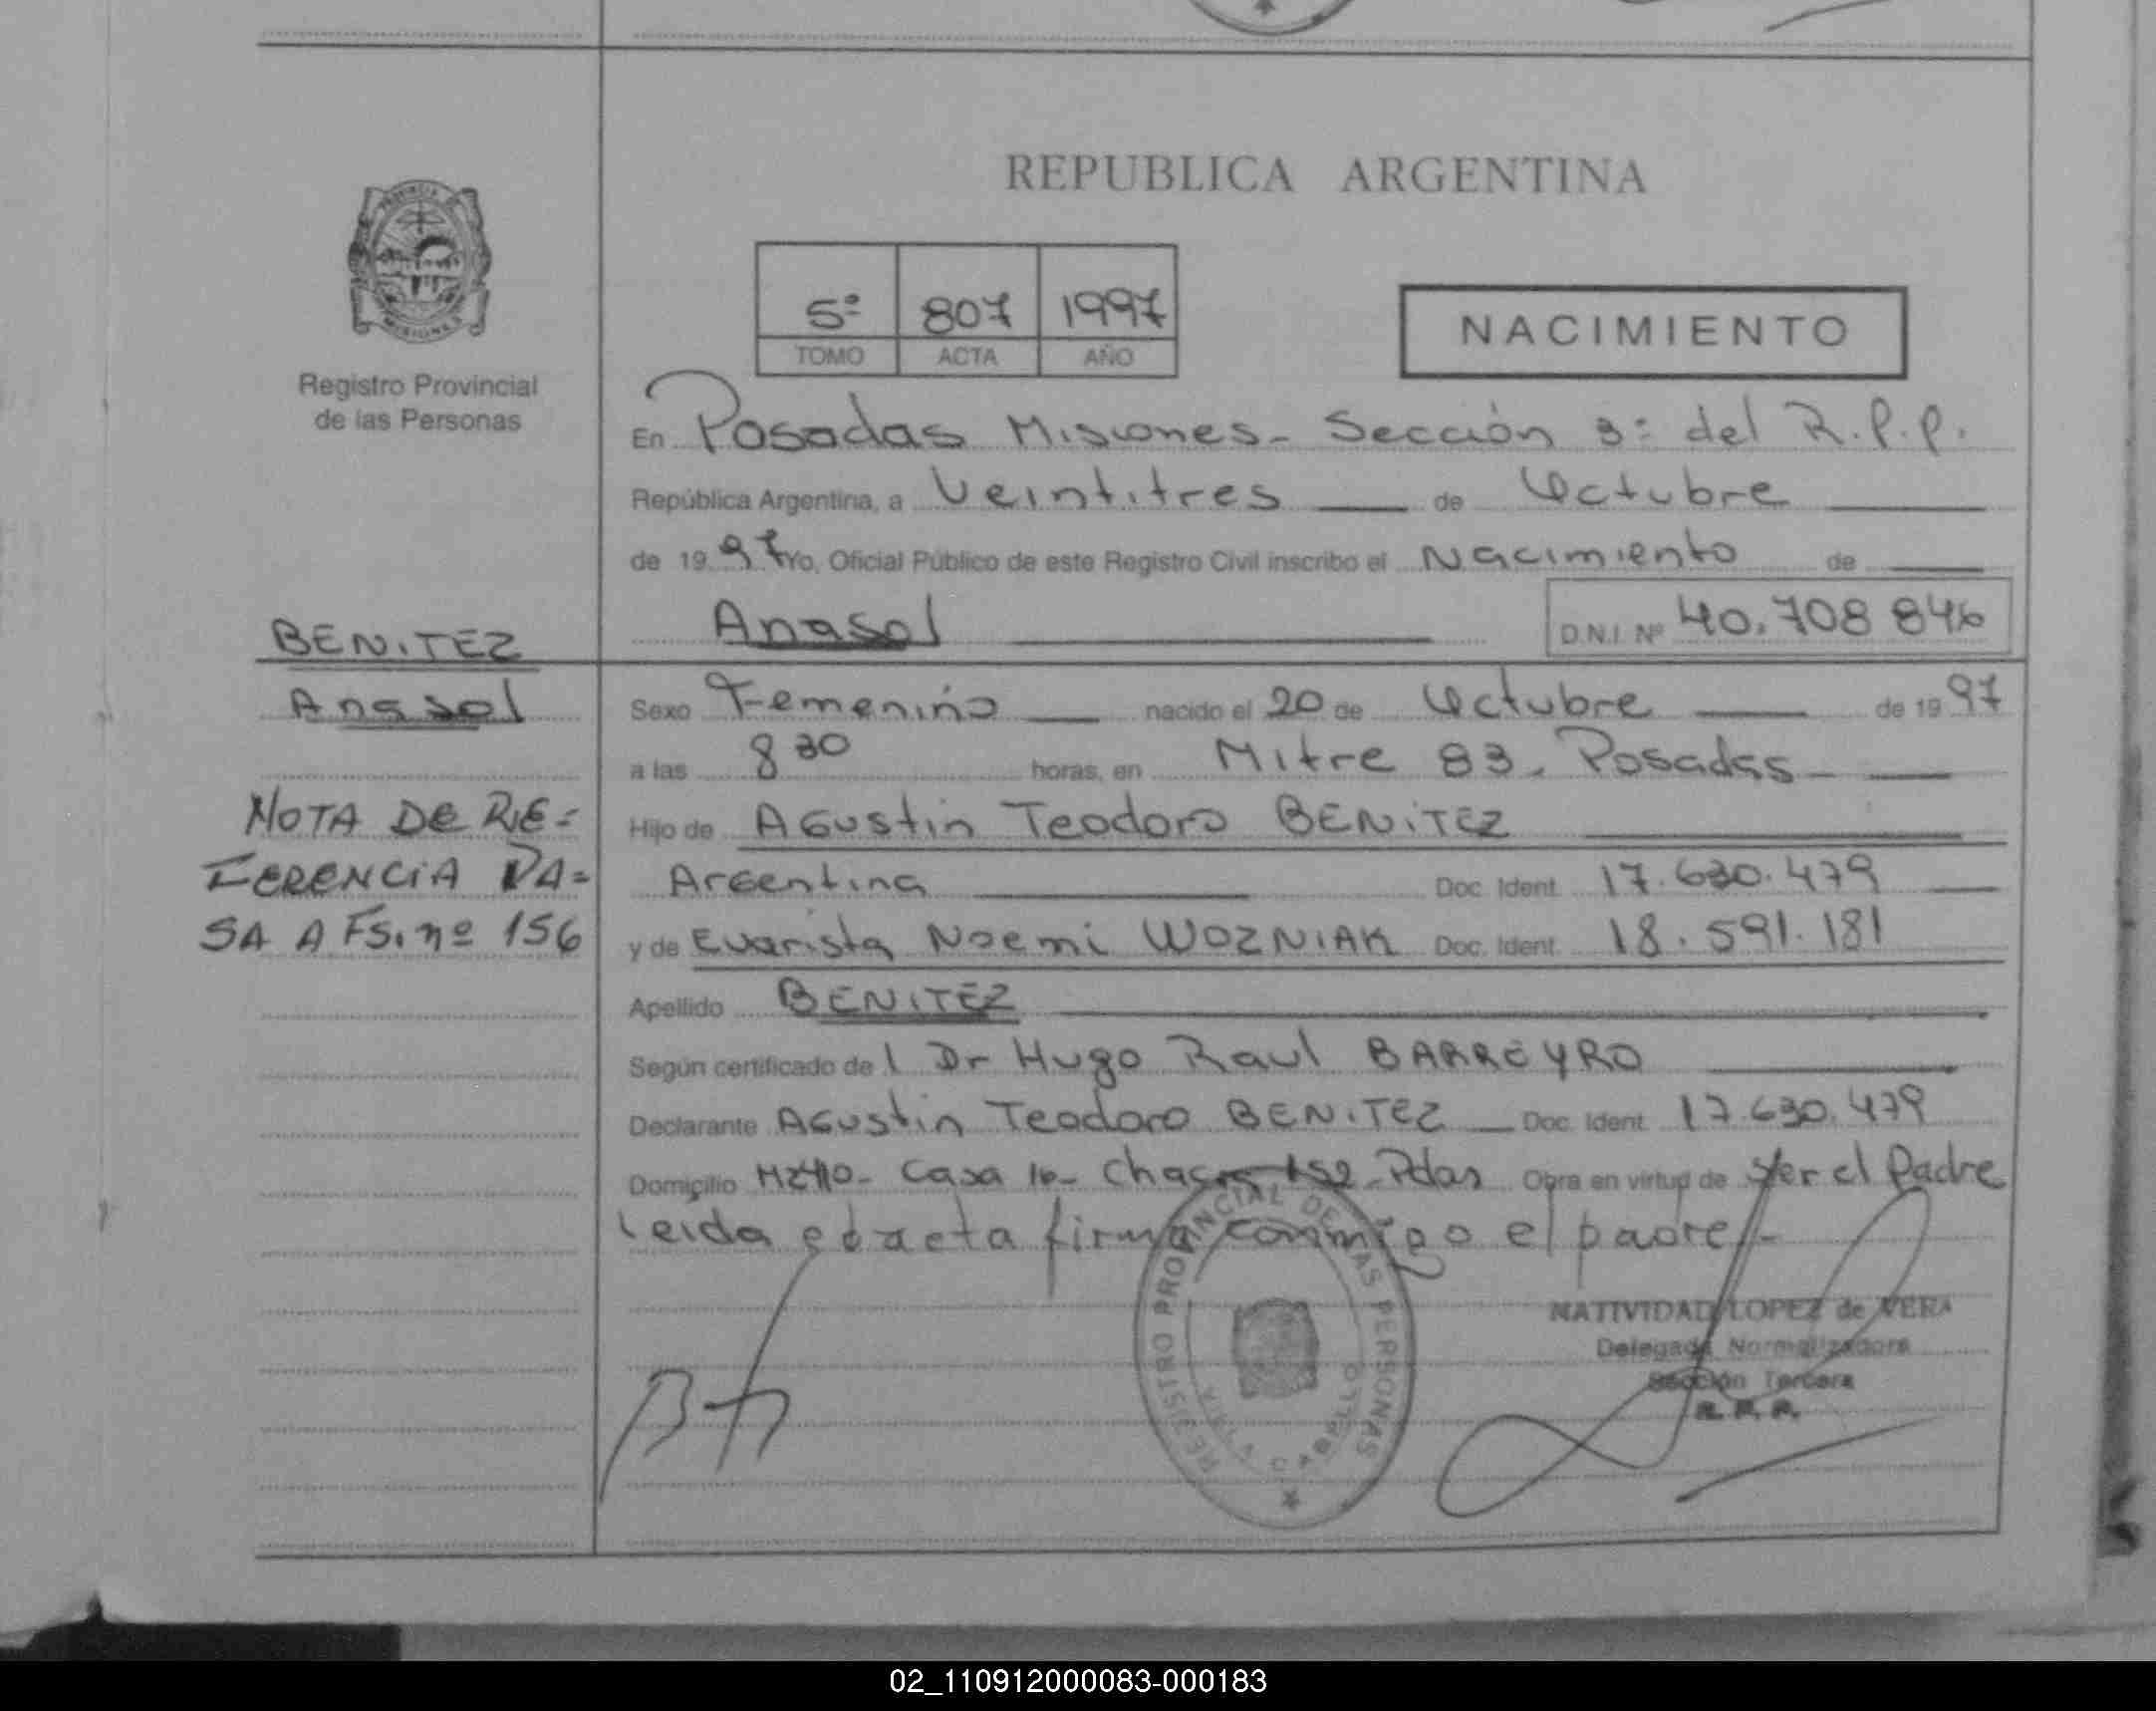 REPUBLICA ARGENTINA
PROVINCIA DE
MISIONES
Registro Provincial
de las Personas
5º 807 1997
TOMO ACTA AÑO
NACIMIENTO
En Posadas Misiones - Sección 3º del R.P.P.
República Argentina, a Veintitres de Octubre
de 19 97 Yo, Oficial Público de este Registro Civil inscribo el Nacimiento de
Anasol D.N.I. Nº 40.708 846
BENITEZ
Anasol
Sexo Femenino nacido el 20 de Octubre de 19 97
a las 8 30 horas, en Mitre 83. Posadas
Hijo de Agustin Teodoro BENITEZ
Argentina Doc. Ident. 17.630.479
y de Evarista Noemi WOZNIAK Doc. Ident. 18.591.181
Apellido BENITEZ
Según certificado de l Dr Hugo Raul BARREYRO
Declarante Agustin Teodoro BENITEZ Doc. Ident. 17.630.479
Domicilio Casa 16 - Chacra 152 - Pdas Obra en virtud de ser el Padre
Leida el acta firma conmigo el padre.-
NOTA DE RE=
FERENCIA PA=
SA A FS. nº 156
REGISTRO PROVINCIAL DE LAS PERSONAS
VILLA CABELLO
NATIVIDAD LOPEZ de VERA
Delegada Normalizadora
Sección Tercera
R. P. P.
02_110912000083-000183